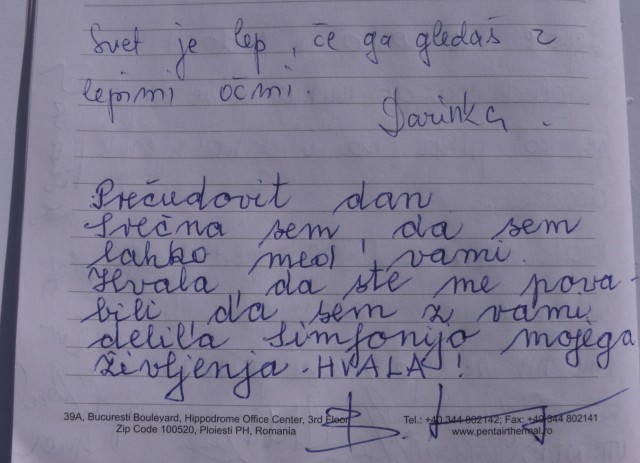 Svet je lep, če ga gledaš z
lepimi očmi.
Darinka.
Prečudovit dan
Srečna sem, da sem
lahko med vami.
Hvala, da ste me pova-
bili da sem z vami
delila simfonijo mojega
življenja. HVALA!
39A, Bucuresti Boulevard, Hippodrome Office Center, 3rd Floor
Zip Code 100520, Ploiesti PH, Romania
Tel.: +40 344 802142; Fax: +40 344 802141
www.pentairthermal.ro